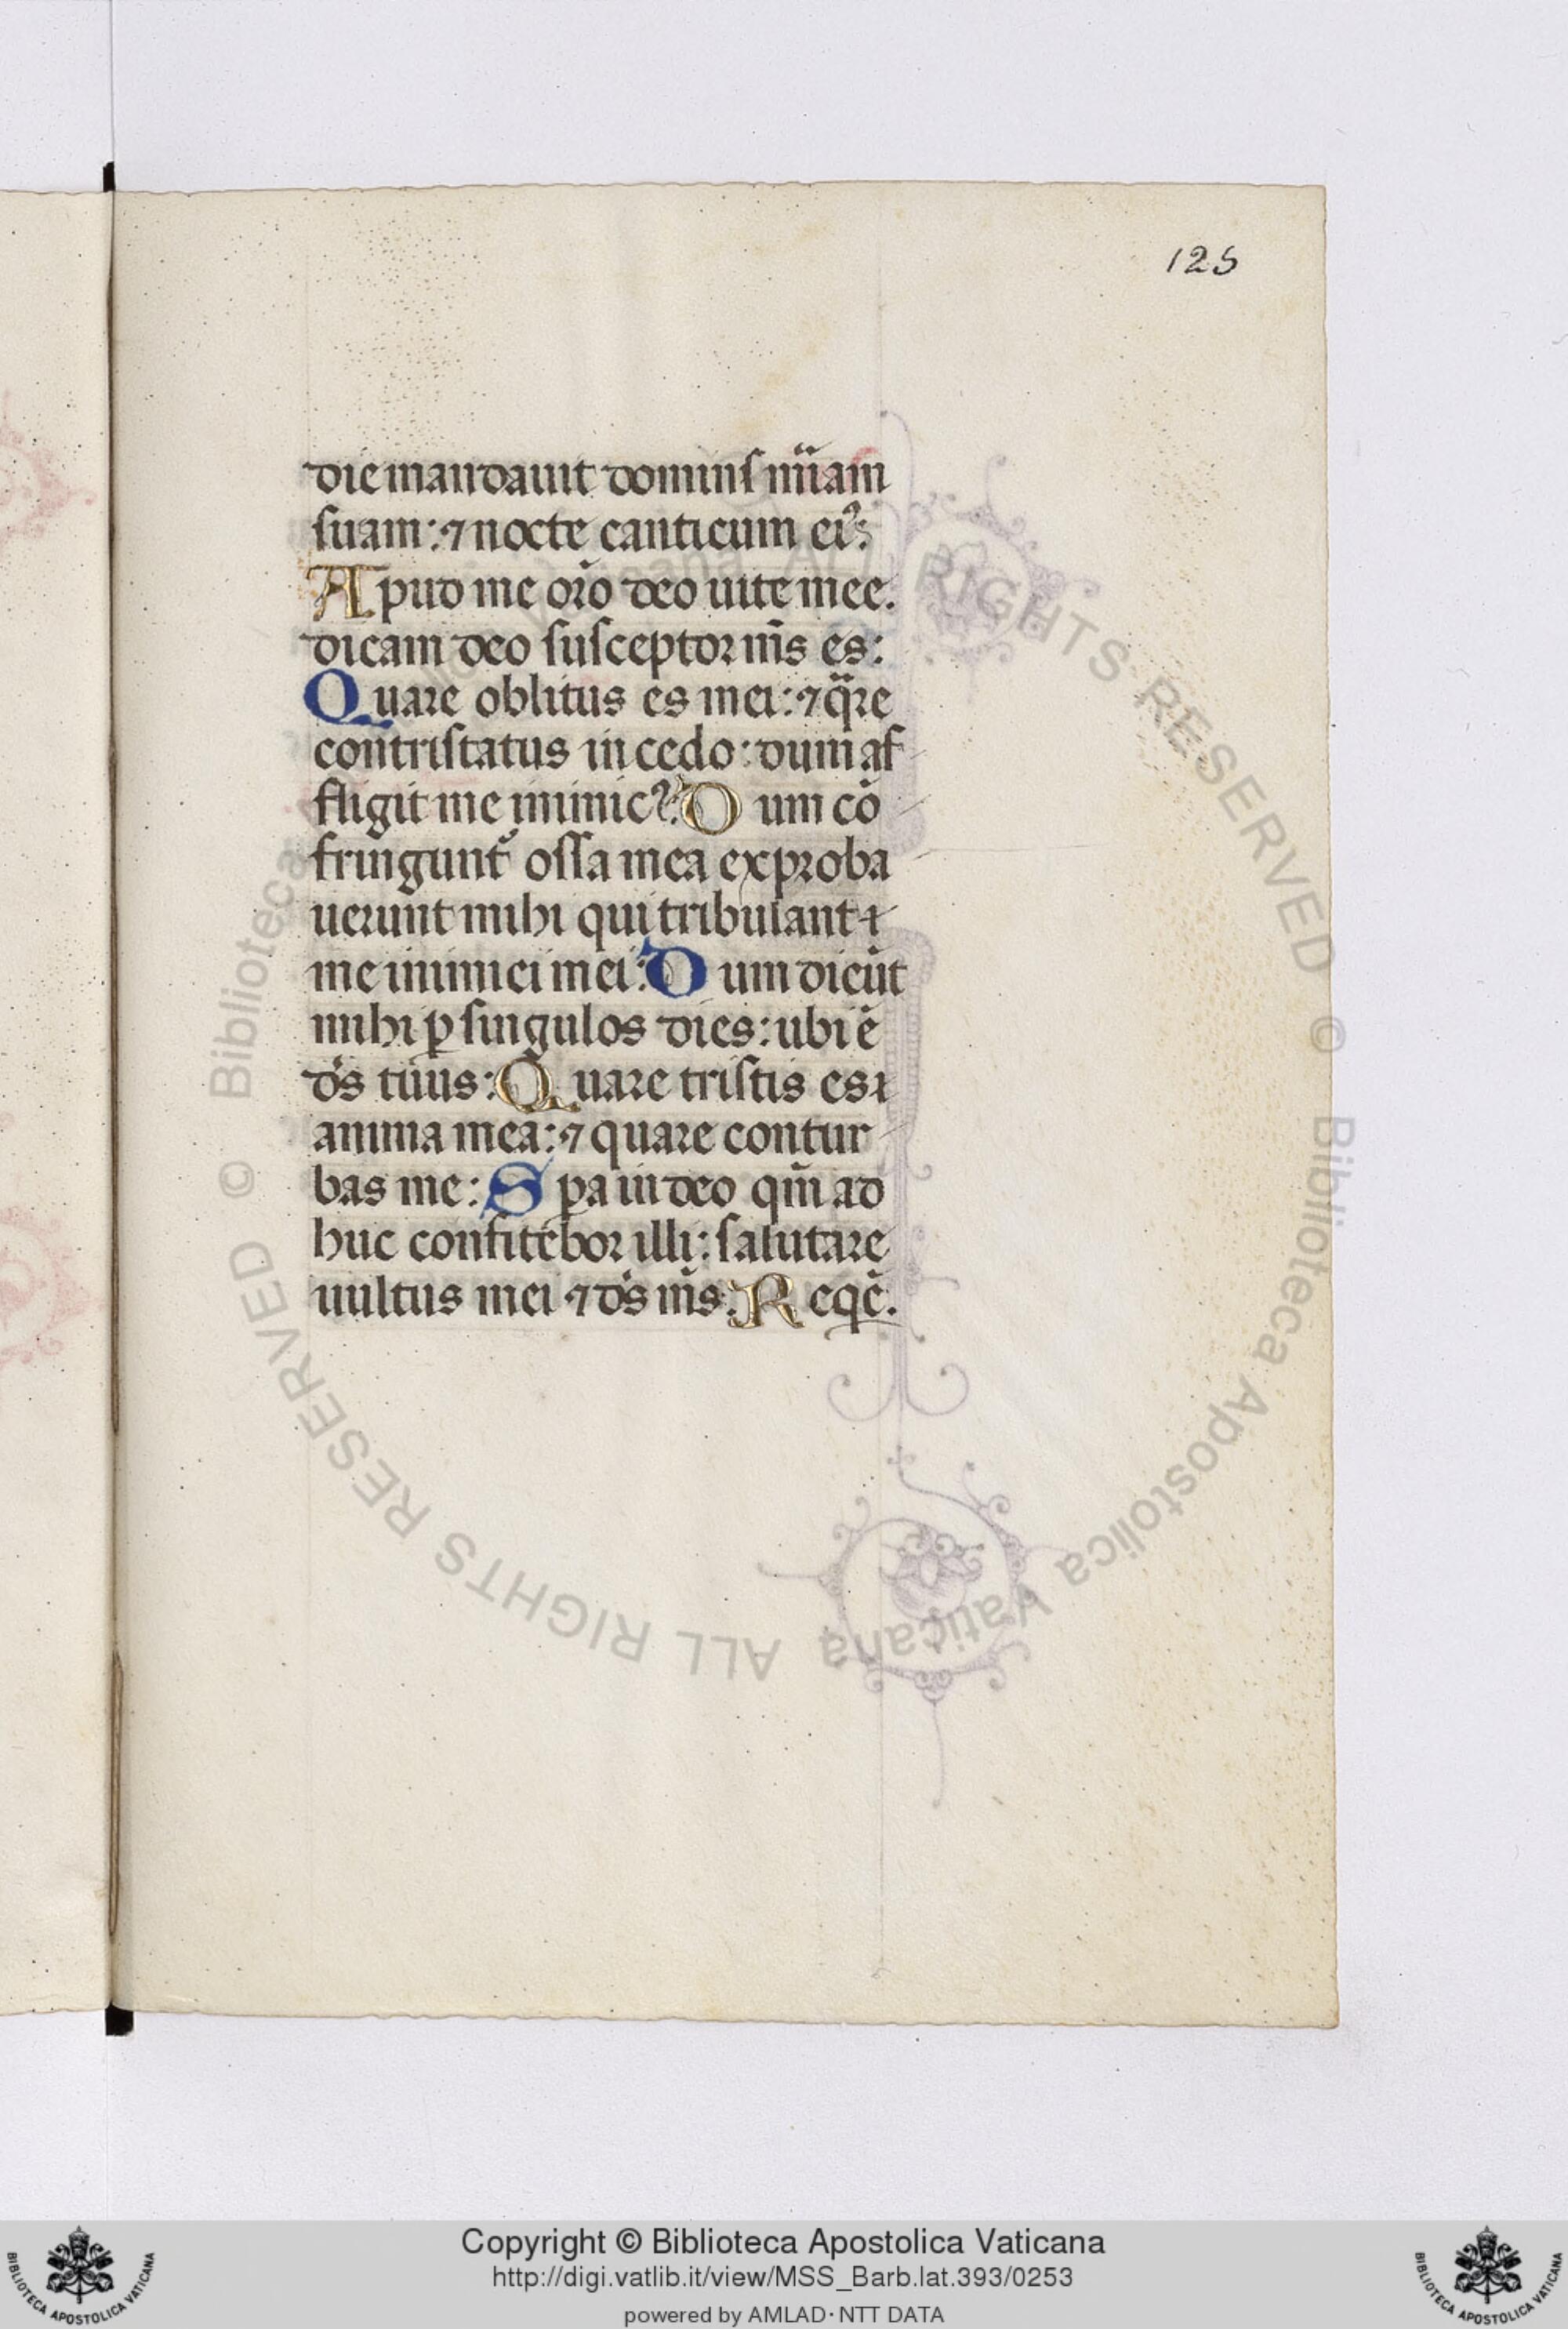 125
die mandauit dominſ mi̅am
suam: ⁊ nocte canticum eiꝰ:
Apud me oro̅ deo uite mee.
dicam deo suſceptor m̅s es:
Quare oblitus es mei: ⁊ qᷓre
contriſtatus in cedo: dum af
fligit me inimicꝰ: Dum co̅
fringunt᷑ oſſa mea exproba
uerunt mihi qui tribulant
me inimici mei: Dum dicu̅t
mihi ꝑ ſingulos dies: ubi e̅
d̅s tuus: Quare triſtis es
anima mea: ⁊ quare contur
bas me: Sꝑa in deo qm̅ ad
huc confitebor illi: ſalutare
uultus mei ⁊ d̅s m̅s: Reqe̅.
© Biblioteca Apostolica Vaticana ALL RIGHTS RESERVED
© Biblioteca Apostolica Vaticana ALL RIGHTS RESERVED
Copyright © Biblioteca Apostolica Vaticana
http://digi.vatlib.it/view/MSS_Barb.lat.393/0253
powered by AMLAD · NTT DATA
BIBLIOTECA APOSTOLICA VATICANA
BIBLIOTECA APOSTOLICA VATICANA